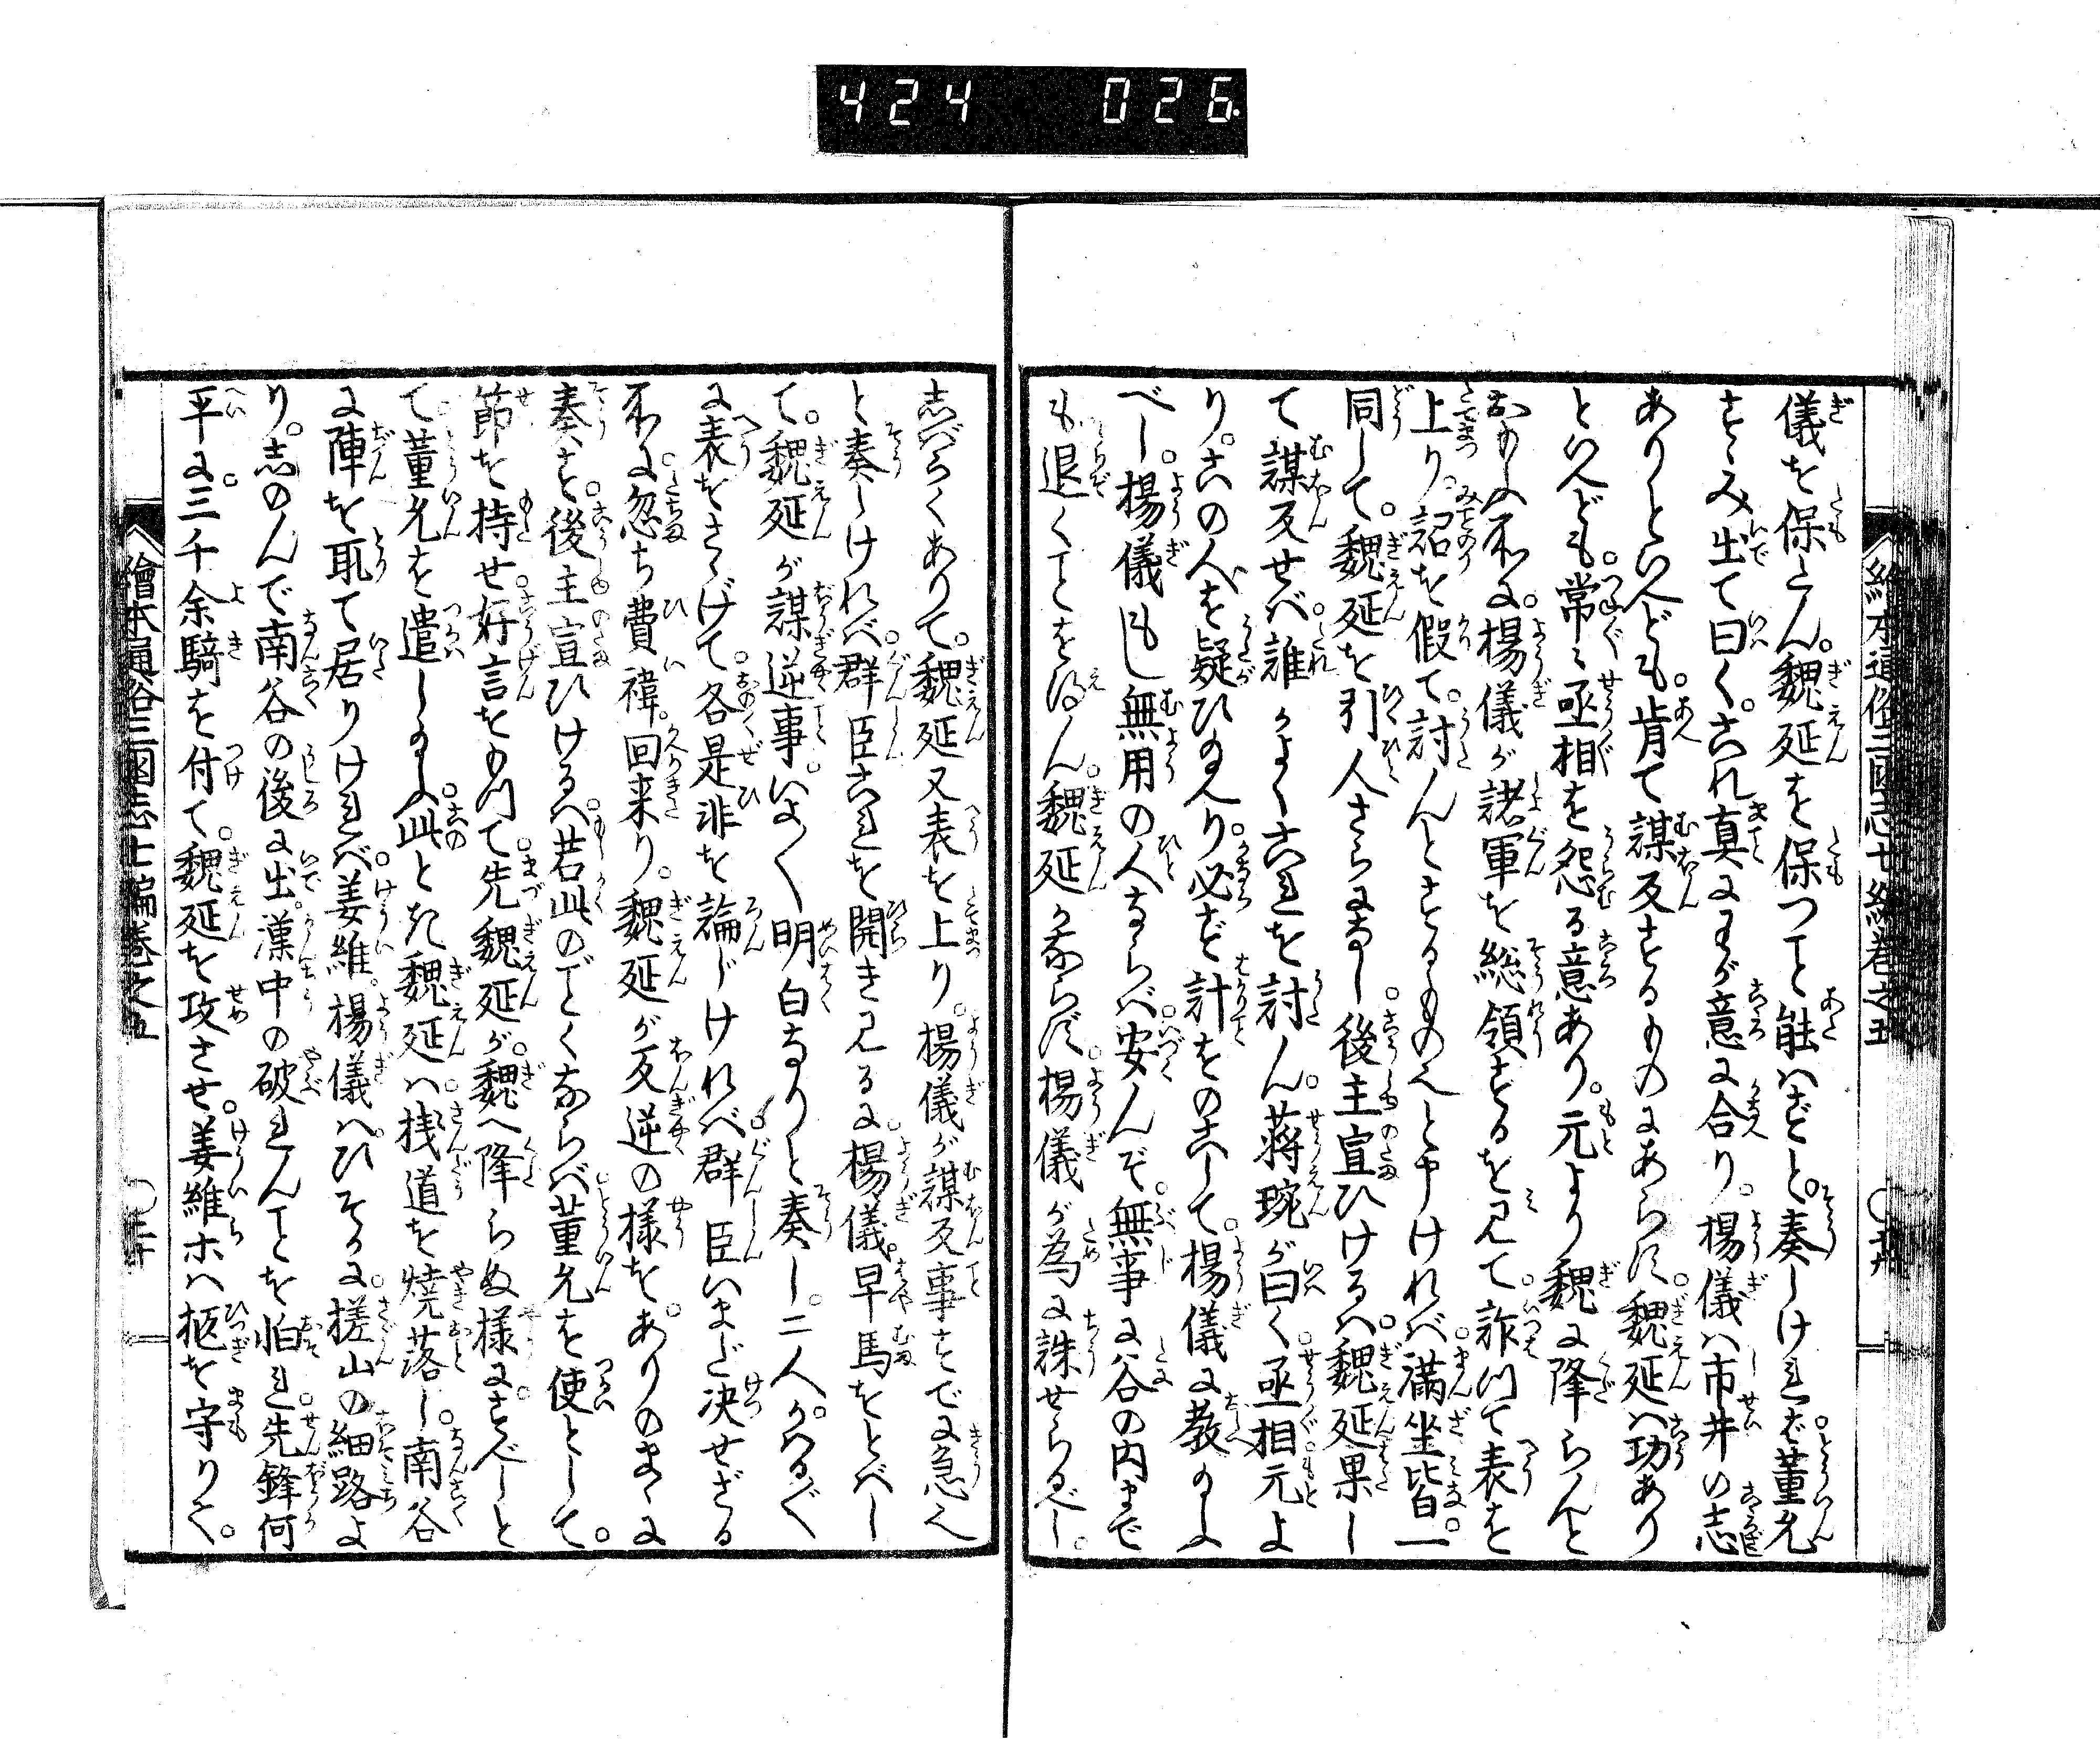 424 026
繪本通俗三國志七編巻之五
儀を保とん。魏延を保つこと能はずと。奏しければ董允
すゝみ出て曰く。これ真にわが意に合り。楊儀は市井の志
ありといへども。肯て謀反するものにあらず。魏延は功あり
といへども。常に丞相を怨る意あり。元より魏に降らんと
おもふ所に。楊儀が諸軍を総領するを見て。詐て表を
上り。詔を假て。討んとするものへと申ければ。満坐皆一
同して。魏延を引人さらになし。後主宣ひけるは。魏延果し
て謀反せば。誰かよくこれを討ん。蒋琬が曰く。丞相元よ
り。此の人を疑ひ給へり。必ず計をのこして。楊儀に教のふ
べし。楊儀もし無用の人ならば。安んぞ。無事に谷の内まで
も退くことを得ん。魏延かならず。楊儀が為に誅せらるべし。
志ばらくありて。魏延又表を上り。楊儀が謀反事すでに急へ
と奏しければ。群臣これを開き見るに。楊儀。早馬をとべし
て。魏延が謀逆事。いよ〱明白なりと奏し。二人がかへるが
に表をさゝげて。各是非を論じければ。群臣いまだ决せざる
所に。忽ち費禕。回来り。魏延が反逆の様を。ありのまゝに
奏す。後主宣ひけるは。若此のごとくならば。董允を使として。
節を持せ。好言をもつて。先魏延が。魏へ降らぬ様に。すべしと
て。董允を遣しけり。此とき魏延は。桟道を焼落し。南谷
に陣を取て居りければ。姜維。楊儀は。ひそかに。搓山の細路よ
り。志のんで南谷の後に出。漢中の破れんことを怕れ。先鋒何
平に。三千余騎を付て。魏延を攻させ。姜維ホは柩を守りて。
繪本通俗三國志七編巻之五 〇三十